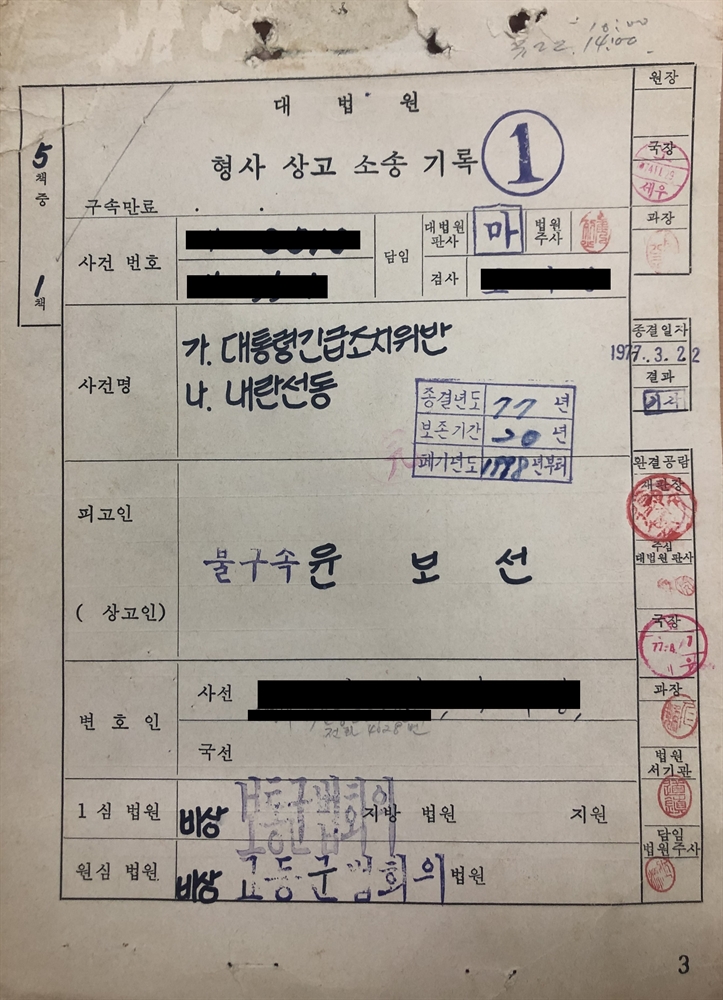 14:00
원장
대 법 원
5
책
중
1
책
형사 상고 소송 기록
1
국장
세우
구속만료 . .
과장
사건 번호
담임
대법원
판사
마
법원
주사
검사
종결일자
1977.3.22
결과
사건명
가. 대통령긴급조치위반
나. 내란선동
종결년도 77 년
보존기간 20 년
폐기년도 1998년부터
완결공람
재판장
주심
대법원 판사
피고인
불구속 윤 보 선
( 상고인)
국장
과장
변 호 인
사선
국선
법원
서기관
1 심 법원
비상
지방 법원
지원
담임
법원주사
원심 법원
비상 고등군법회의 법원
3